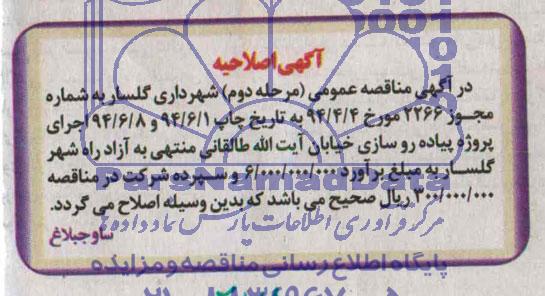 آگهی اصلاحیه
در آگهی مناقصه عمومی (مرحله دوم) شهرداری گلسار به شماره
مجوز ۲۲۶۶ مورخ ۹۴/۴/۴ به تاریخ چاپ ۹۴/۶/۱ و ۹۴/۶/۸ اجرای
پروژه پیاده رو سازی خیابان آیت الله طالقانی منتهی به آزاد راه شهر
گلسار به مبلغ برآورد ۶/۰۰۰/۰۰۰/۰۰۰ و سپرده شرکت در مناقصه
۳۰۰/۰۰۰/۰۰۰ ریال صحیح می باشد که بدین وسیله اصلاح می گردد.
ساوجبلاغ
ParsNamadData
مرکز فرآوری اطلاعات پارس نماد داده ها
پایگاه اطلاع رسانی مناقصه و مزایده